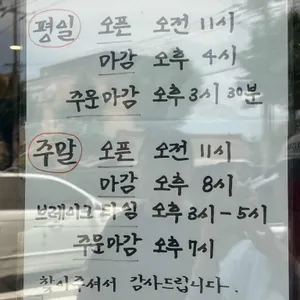 평일 오픈 오전 11시
마감 오후 4시
주문마감 오후 3시 30분
주말 오픈 오전 11시
마감 오후 8시
브레이크 타임 오후 3시-5시
주문마감 오후 7시
찾아주셔서 감사드립니다.